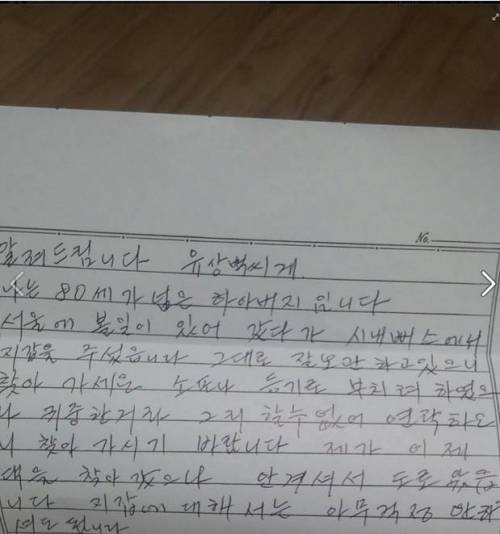 No.
알려드립니다 유상백씨게
나는 80세가 넘은 하아버지 입니다
서울에 볼일이 있어 갔다가 시내뻐스에서
지갑을 주섰읍니다 그대로 잘보안 하고있으니
찾아 가세요 소포나 등기로 부치려 하였으
나 귀중한거라 그리 할수없어 연락하오
니 찾아 가시기 바랍니다 제가 어제
댁을 찾아 갔으나 안계셔서 도로 왔읍
니다 지갑에 대해서는 아무걱정 안하
셔도 됩니다